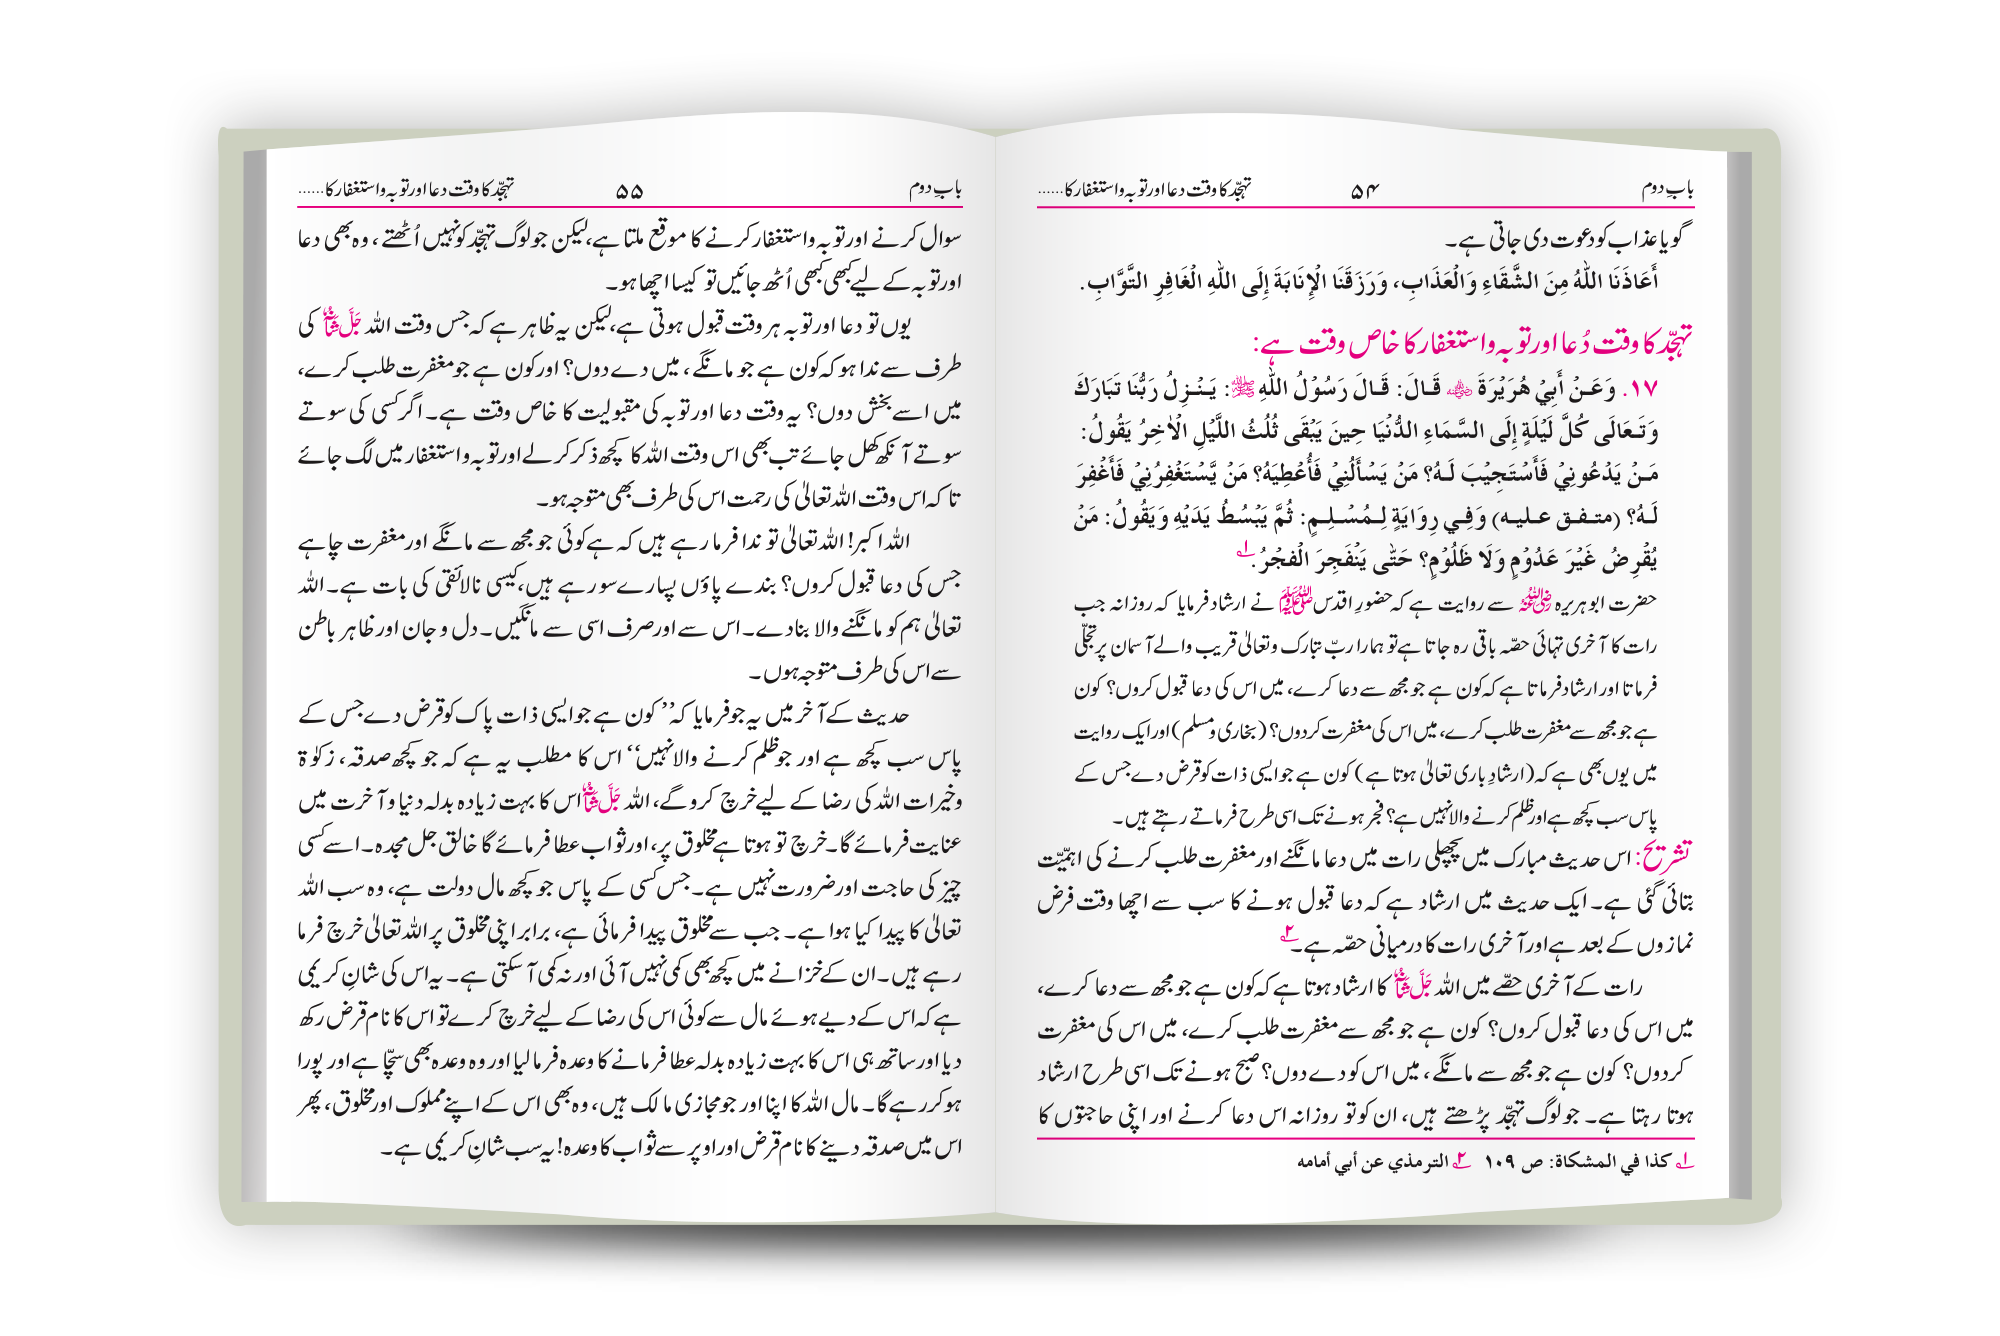 بابِ دوم ۵۴ تہجّد کا وقت دعا اور توبہ و استغفار کا......
گویا عذاب کو دعوت دی جاتی ہے۔
أَعَاذَنَا اللّٰهُ مِنَ الشَّقَاءِ وَالْعَذَابِ، وَرَزَقَنَا الْإِنَابَةَ إِلَى اللّٰهِ الْغَافِرِ التَّوَّابِ.
تہجّد کا وقت دُعا اور توبہ و استغفار کا خاص وقت ہے:
۱۷. وَعَنْ أَبِيْ هُرَيْرَةَ ؓ قَالَ: قَالَ رَسُوْلُ اللّٰهِ ﷺ: يَنْزِلُ رَبُّنَا تَبَارَكَ
وَتَعَالَى كُلَّ لَيْلَةٍ إِلَى السَّمَاءِ الدُّنْيَا حِينَ يَبْقَى ثُلُثُ اللَّيْلِ الْاٰخِرُ يَقُولُ:
مَنْ يَدْعُونِيْ فَأَسْتَجِيْبَ لَهُ؟ مَنْ يَسْأَلُنِيْ فَأُعْطِيَهُ؟ مَنْ يَّسْتَغْفِرُنِيْ فَأَغْفِرَ
لَهُ؟ (متفق عليه) وَفِي رِوَايَةٍ لِمُسْلِمٍ: ثُمَّ يَبْسُطُ يَدَيْهِ وَيَقُولُ: مَنْ
يُقْرِضُ غَيْرَ عَدُوْمٍ وَلَا ظَلُوْمٍ؟ حَتّٰى يَنْفَجِرَ الْفَجْرُ. ۱؎
حضرت ابوہریرہ رضی اللہ عنہ سے روایت ہے کہ حضورِ اقدس ﷺ نے ارشاد فرمایا کہ روزانہ جب
رات کا آخری تہائی حصّہ باقی رہ جاتا ہے تو ہمارا ربّ تبارک وتعالیٰ قریب والے آسمان پر تجلّی
فرماتا اور ارشاد فرماتا ہے کہ کون ہے جو مجھ سے دعا کرے، میں اس کی دعا قبول کروں؟ کون
ہے جو مجھ سے مغفرت طلب کرے، میں اس کی مغفرت کردوں؟ (بخاری و مسلم) اور ایک روایت
میں یوں بھی ہے کہ (ارشادِ باری تعالیٰ ہوتا ہے) کون ہے جو ایسی ذات کو قرض دے جس کے
پاس سب کچھ ہے اور ظلم کرنے والا نہیں ہے؟ فجر ہونے تک اسی طرح فرماتے رہتے ہیں۔
تشریح: اس حدیث مبارک میں پچھلی رات میں دعا مانگنے اور مغفرت طلب کرنے کی اہمیّت
بتائی گئی ہے۔ ایک حدیث میں ارشاد ہے کہ دعا قبول ہونے کا سب سے اچھا وقت فرض
نمازوں کے بعد ہے اور آخری رات کا درمیانی حصّہ ہے۔ ۲؎
رات کے آخری حصّے میں اللہ جَلَّ شَانُہٗ کا ارشاد ہوتا ہے کہ کون ہے جو مجھ سے دعا کرے،
میں اس کی دعا قبول کروں؟ کون ہے جو مجھ سے مغفرت طلب کرے، میں اس کی مغفرت
کردوں؟ کون ہے جو مجھ سے مانگے، میں اس کو دے دوں؟ صبح ہونے تک اسی طرح ارشاد
ہوتا رہتا ہے۔ جو لوگ تہجّد پڑھتے ہیں، ان کو تو روزانہ اس دعا کرنے اور اپنی حاجتوں کا
۱؎ كذا في المشكاة: ص ۱۰۹ ۲؎ الترمذي عن أبي أمامه
بابِ دوم ۵۵ تہجّد کا وقت دعا اور توبہ و استغفار کا......
سوال کرنے اور توبہ و استغفار کرنے کا موقع ملتا ہے، لیکن جو لوگ تہجّد کو نہیں اُٹھتے، وہ بھی دعا
اور توبہ کے لیے کبھی کبھی اُٹھ جائیں تو کیسا اچھا ہو۔
یوں تو دعا اور توبہ ہر وقت قبول ہوتی ہے، لیکن یہ ظاہر ہے کہ جس وقت اللہ جَلَّ شَانُہٗ کی
طرف سے ندا ہو کہ کون ہے جو مانگے، میں دے دوں؟ اور کون ہے جو مغفرت طلب کرے،
میں اسے بخش دوں؟ یہ وقت دعا اور توبہ کی مقبولیت کا خاص وقت ہے۔ اگر کسی کی سوتے
سوتے آنکھ کھل جائے تب بھی اس وقت اللہ کا کچھ ذکر کرلے اور توبہ و استغفار میں لگ جائے
تاکہ اس وقت اللہ تعالیٰ کی رحمت اس کی طرف بھی متوجہ ہو۔
اللہ اکبر! اللہ تعالیٰ تو ندا فرما رہے ہیں کہ ہے کوئی جو مجھ سے مانگے اور مغفرت چاہے
جس کی دعا قبول کروں؟ بندے پاؤں پسارے سو رہے ہیں، کیسی نالائقی کی بات ہے۔ اللہ
تعالیٰ ہم کو مانگنے والا بنادے۔ اس سے اور صرف اسی سے مانگیں۔ دل و جان اور ظاہر باطن
سے اس کی طرف متوجہ ہوں۔
حدیث کے آخر میں یہ جو فرمایا کہ ’’کون ہے جو ایسی ذات پاک کو قرض دے جس کے
پاس سب کچھ ہے اور جو ظلم کرنے والا نہیں‘‘ اس کا مطلب یہ ہے کہ جو کچھ صدقہ، زکوٰۃ
وخیرات اللہ کی رضا کے لیے خرچ کروگے، اللہ جَلَّ شَانُہٗ اس کا بہت زیادہ بدلہ دنیا و آخرت میں
عنایت فرمائے گا۔ خرچ تو ہوتا ہے مخلوق پر، اور ثواب عطا فرمائے گا خالق جل مجدہ۔ اسے کسی
چیز کی حاجت اور ضرورت نہیں ہے۔ جس کسی کے پاس جو کچھ مال دولت ہے، وہ سب اللہ
تعالیٰ کا پیدا کیا ہوا ہے۔ جب سے مخلوق پیدا فرمائی ہے، برابر اپنی مخلوق پر اللہ تعالیٰ خرچ فرما
رہے ہیں۔ ان کے خزانے میں کچھ بھی کمی نہیں آئی اور نہ کمی آسکتی ہے۔ یہ اس کی شانِ کریمی
ہے کہ اس کے دیے ہوئے مال سے کوئی اس کی رضا کے لیے خرچ کرے تو اس کا نام قرض رکھ
دیا اور ساتھ ہی اس کا بہت زیادہ بدلہ عطا فرمانے کا وعدہ فرما لیا اور وہ وعدہ بھی سچّا ہے اور پورا
ہو کر رہے گا۔ مال اللہ کا اپنا اور جو مجازی مالک ہیں، وہ بھی اس کے اپنے مملوک اور مخلوق، پھر
اس میں صدقہ دینے کا نام قرض اور اوپر سے ثواب کا وعدہ! یہ سب شانِ کریمی ہے۔